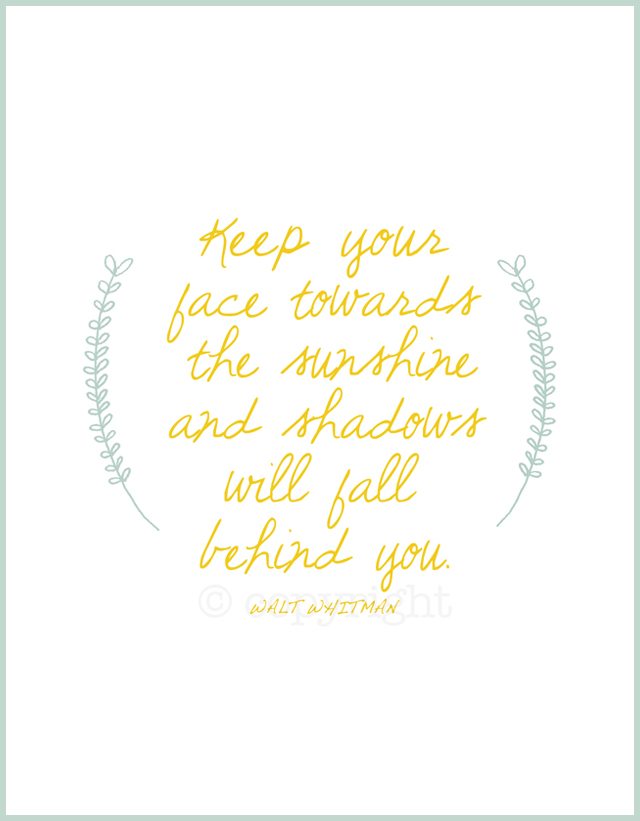 Keep your
face towards
the sunshine
and shadows
will fall
behind you.
WALT WHITMAN
© copyright